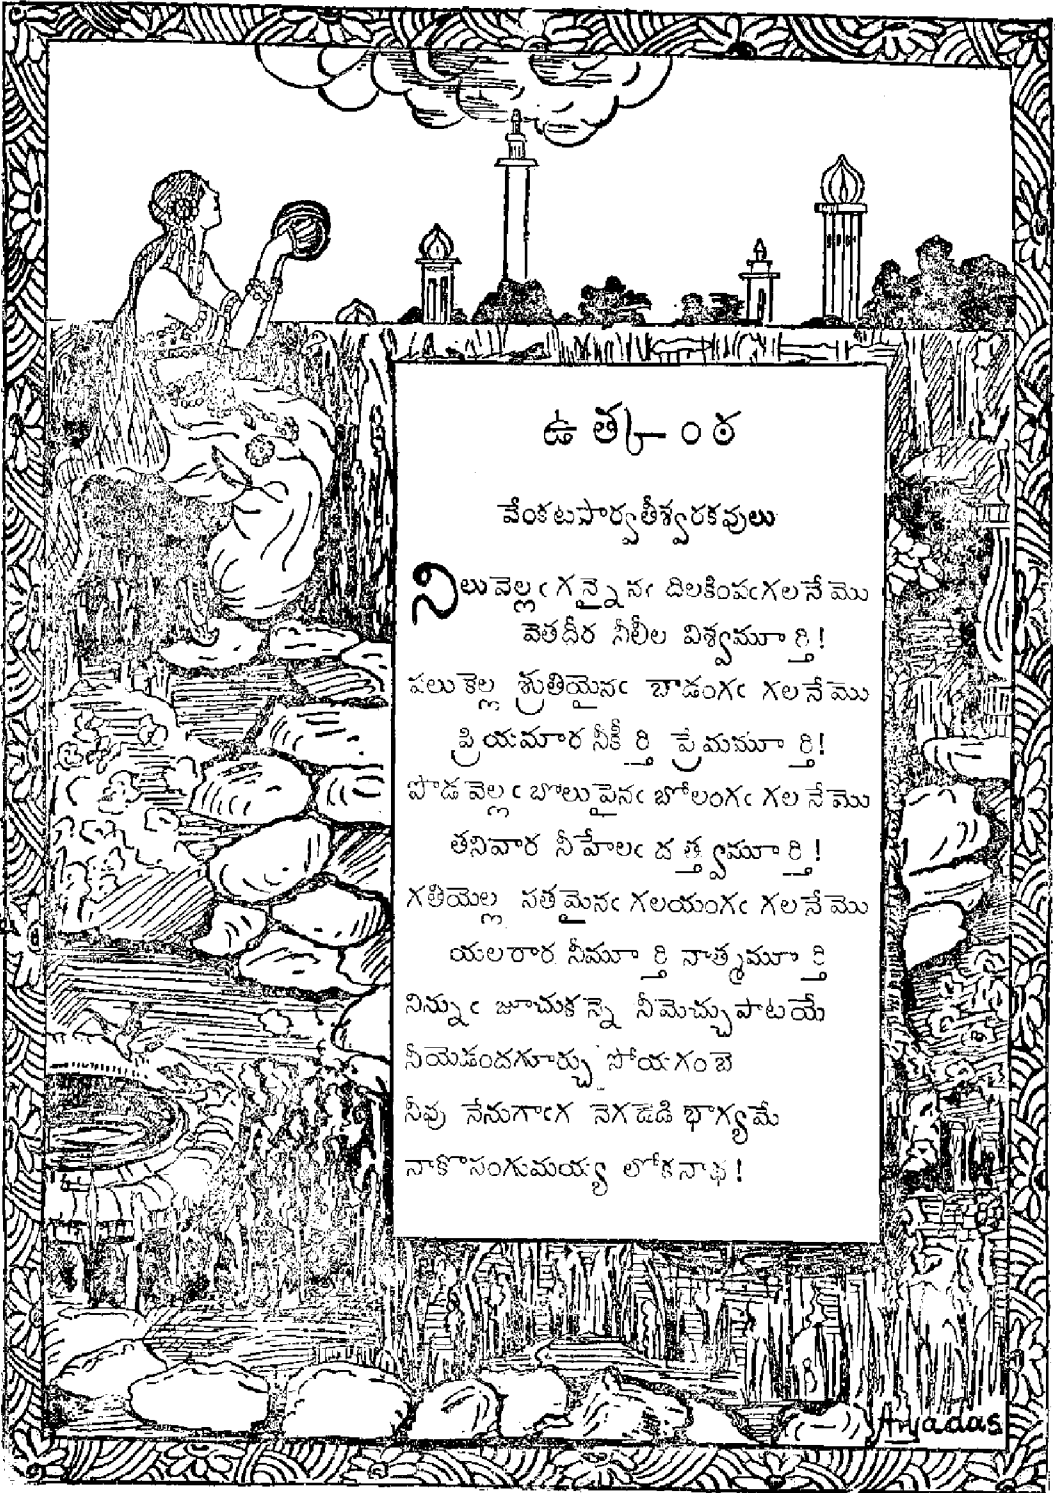 ఉత్కంఠ
వేంకటపార్వతీశ్వరకవులు
నిలువెల్లఁ గన్నైనఁ దిలకింపఁగలనేమొ
వెతదీర నీలీల విశ్వమూర్తి!
పలుకెల్ల శ్రుతియైనఁ బాడంగఁ గలనేమొ
ప్రియమార నీకీర్తి ప్రేమమూర్తి!
పొడవెల్లఁ బోలుపైనఁ బోలంగఁ గలనేమొ
తనివార నీహేలఁ దత్త్వమూర్తి!
గతియెల్ల సతమైనఁ గలయంగఁ గలనేమొ
యలరార నీమూర్తి నాత్మమూర్తి
నిన్నుఁ జూచుకన్నె నీమెచ్చుపాటయే
నీయెడందగూర్చు సోయగంబె
నీవు నేనుగాఁగ నెగడెడి భాగ్యమే
నాకొసంగుమయ్య లోకనాథ!
Aryadas